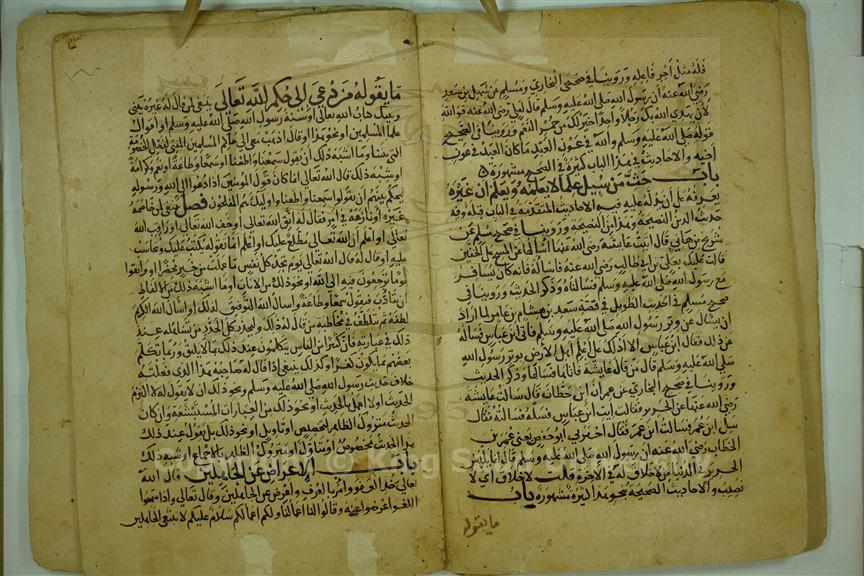 فله مثل أجر فاعله وروينا في صحيحي البخاري ومسلم عن سهل بن سعد
رضي الله عنه أن رسول الله صلى الله عليه وسلم قال لعلي رضي الله عنه فوالله
لأن يهدي الله بك رجلا واحدا خير لك من حمر النعم وروينا في الصحيح
قوله صلى الله عليه وسلم والله في عون العبد ما كان العبد في عون
أخيه والأحاديث في هذا الباب كثيرة في الصحيح مشهورة
باب حث من سئل علما لا يعلمه ويعلم أن غيره
يعرفه على أن يدله عليه فيه الأحاديث المتقدمة في الباب قبله وفيه
حديث الدين النصيحة وهذا من النصيحة وروينا في صحيح مسلم عن
شريح بن هانئ قال أتيت عائشة رضي الله عنها أسألها عن المسح على الخفين
فقالت عليك بعلي بن أبي طالب رضي الله عنه فاسأله فإنه كان يسافر
مع رسول الله صلى الله عليه وسلم فسألناه وذكر الحديث وروينا في
صحيح مسلم في الحديث الطويل في قصة سعد بن هشام بن عامر لما أراد
أن يسأل عن وتر رسول الله صلى الله عليه وسلم فأتى ابن عباس فسأله
عن ذلك فقال ابن عباس ألا أدلك على أعلم أهل الأرض بوتر رسول الله
صلى الله عليه وسلم قال من قال عائشة فأتها فاسألها وذكر الحديث
وروينا في صحيح البخاري عن عمران بن حطان قال سألت عائشة
رضي الله عنها عن الحرير فقالت ايت ابن عباس فسله فسألته فقال
سل ابن عمر فسألت ابن عمر فقال أخبرني أبو حفص يعني عمر بن
الخطاب رضي الله عنه أن رسول الله صلى الله عليه وسلم قال إنما يلبس
الحرير في الدنيا من لا خلاق له في الآخرة قلت لا خلاق أي لا
نصيب والأحاديث الصحيحة بنحو هذا كثيرة مشهورة باب
ما يقوله
ما يقوله من دعي إلى حكم الله تعالى ينبغي لمن قال له غيره بيني
وبينك كتاب الله تعالى أو سنة رسول الله صلى الله عليه وسلم أو أقوال
علماء المسلمين أو نحو هذا أو قال اذهب معي إلى حاكم المسلمين أو المفتي لفصل الخصومة
التي بيننا وما أشبه ذلك أن يقول سمعنا وأطعنا أو سمعا وطاعة أو نعم وكرامة
أو شبه ذلك قال الله تعالى إنما كان قول المؤمنين إذا دعوا إلى الله ورسوله
ليحكم بينهم أن يقولوا سمعنا وأطعنا وأوليك هم المفلحون فصل ينبغي لمن خاصمه
غيره أو نازعه في أمر فقال له اتق الله تعالى أو خف الله تعالى أو راقب الله
تعالى أو اعلم أن الله تعالى مطلع عليك أو اعلم أن ما تقوله يكتب عليك وتحاسب
عليه أو قال له قال الله تعالى يوم تجد كل نفس ما عملت من خير محضرا أو واتقوا
يوما ترجعون فيه إلى الله أو نحو ذلك من الآيات أو ما أشبه ذلك من الألفاظ
أن يتأدب فيقول سمعا وطاعة أو أسأل الله التوفيق لذلك أو أسأل الله الكريم
لطفه ثم يتلطف في مخاطبة من قال له ذلك وليحذر كل الحذر من تساهله عند
ذلك في عبارته فإن كثيرا من الناس يتكلمون عند ذلك بما لا يليق وربما تكلم
بعضهم بما يكون كفرا وكذلك ينبغي إذا قال له صاحبه هذا الذي فعلته
خلاف حديث رسول الله صلى الله عليه وسلم ونحو ذلك أن لا يقول له لا ألتزم
الحديث أو لا أعمل بالحديث أو نحو ذلك من العبارات المستبشعة وإن كان
الحديث متروك الظاهر لتخصيص أو تأويل أو نحو ذلك بل يقول عند ذلك
هذا الحديث مخصوص أو متأول أو متروك الظاهر بالإجماع أو شبه ذلك
باب الإعراض عن الجاهلين قال الله
تعالى خذ العفو وأمر بالعرف وأعرض عن الجاهلين وقال تعالى وإذا سمعوا
اللغو أعرضوا عنه وقالوا لنا أعمالنا ولكم أعمالكم سلام عليكم لا نبتغي الجاهلين